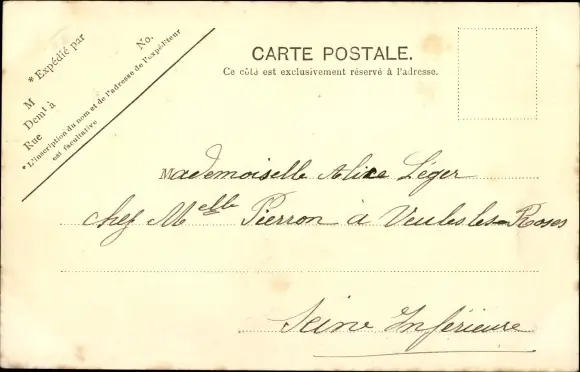 * Expédié par
M
Demt à
Rue No.
* L'inscription du nom et de l'adresse de l'expéditeur
est facultative
CARTE POSTALE.
Ce côté est exclusivement réservé à l'adresse.
Mademoiselle Alice Léger
chez Melle Pierron à Veules les-Roses
Seine Inférieure